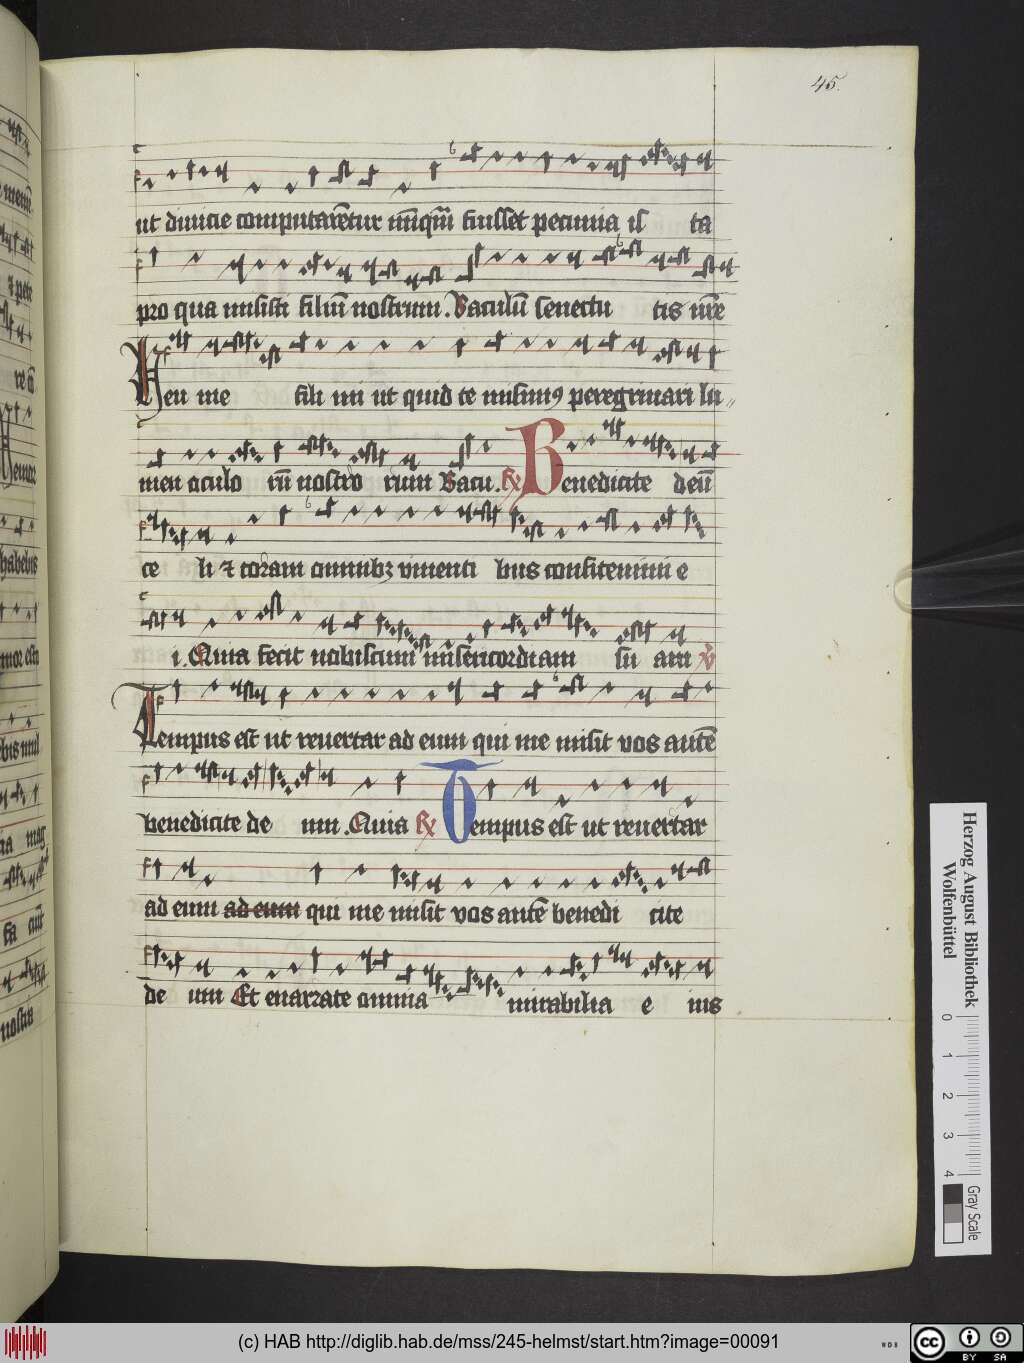 45.
ut diuicie computarētur nūq̄m fuisset pecunia il ta
pro qua misisti filiū nostrum. Baculū senectu tis nr̄e
Heu me fili mi ut quid te misimꝰ peregrinari lu //
men oculo rū nostro rum Bacu. ℟ Benedicite deū
ce li ⁊ coram omnibꝫ viuenti bus confitemini e
i. Quia fecit nobiscum misericordiam su am ℣
Tempus est ut reuertar ad eum qui me misit vos autē
benedicite de um. Quia ℟ Tempus est ut reuertar
ad eum ad eum qui me misit vos autē benedi cite
de um Et enarrate omnia mirabilia e ius
Herzog August Bibliothek
Wolfenbüttel
0 1 2 3 4
Gray Scale
(c) HAB http://diglib.hab.de/mss/245-helmst/start.htm?image=00091
WDB
cc BY SA